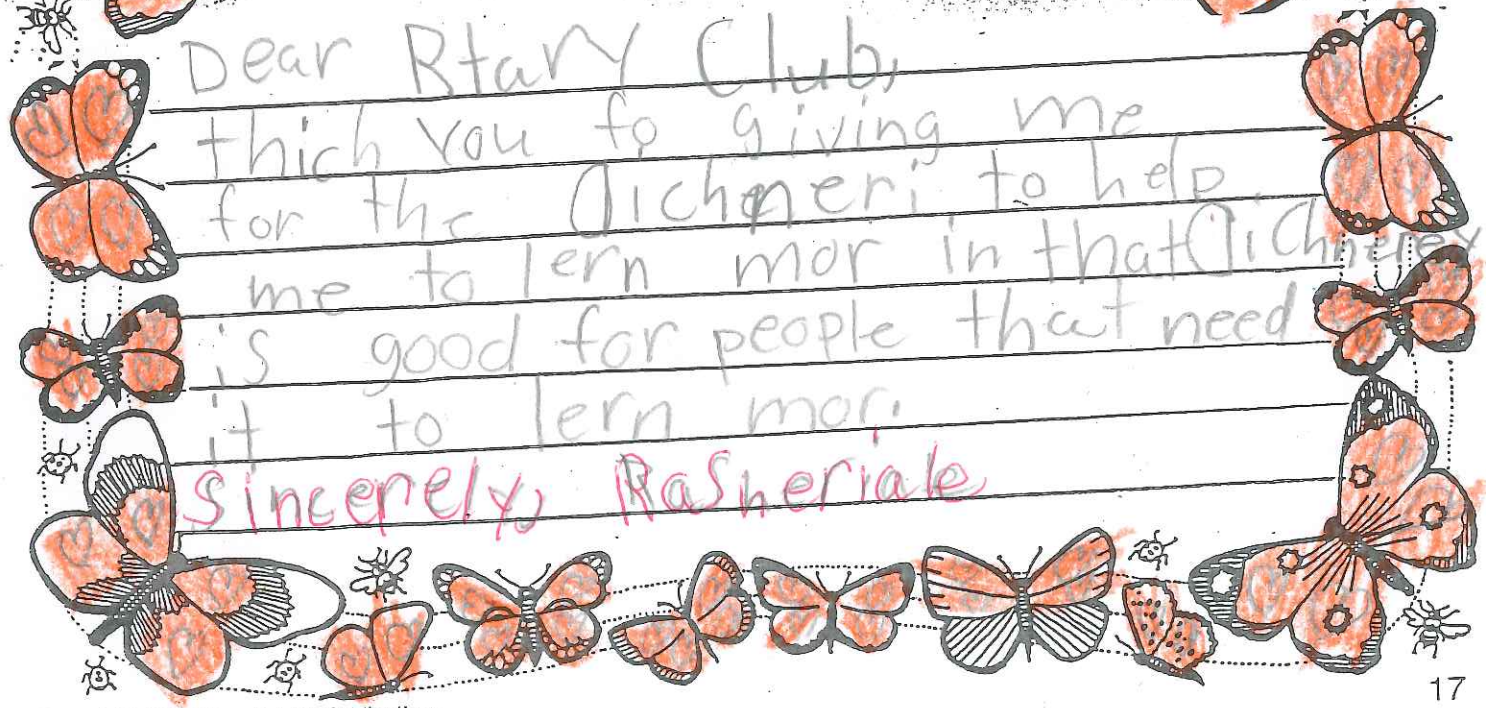 Dear Rtary Club,
thich you fo giving me
for the dichneri to help
me to lern mor in that dichnerey
is good for people that need
it to lern mor.
Sincerely, Rasheriale
17